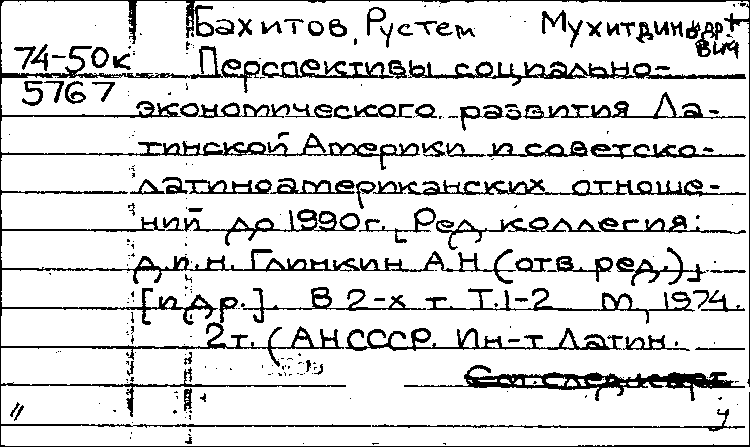 Бахитов, Рустем Мухитдин и др. +
74-50к Перспективы социально-
5767 экономического развития Ла-
тинской Америки и советско-
латиноамериканских отноше-
ний до 1990г. Ред. коллегия:
д.и.н. Глинкин А.Н (отв. ред.)
[и др.]. В 2-х т. Т.1-2 М, 1974.
2т. (АНСССР. Ин-т Латин.
См. след. карт
"